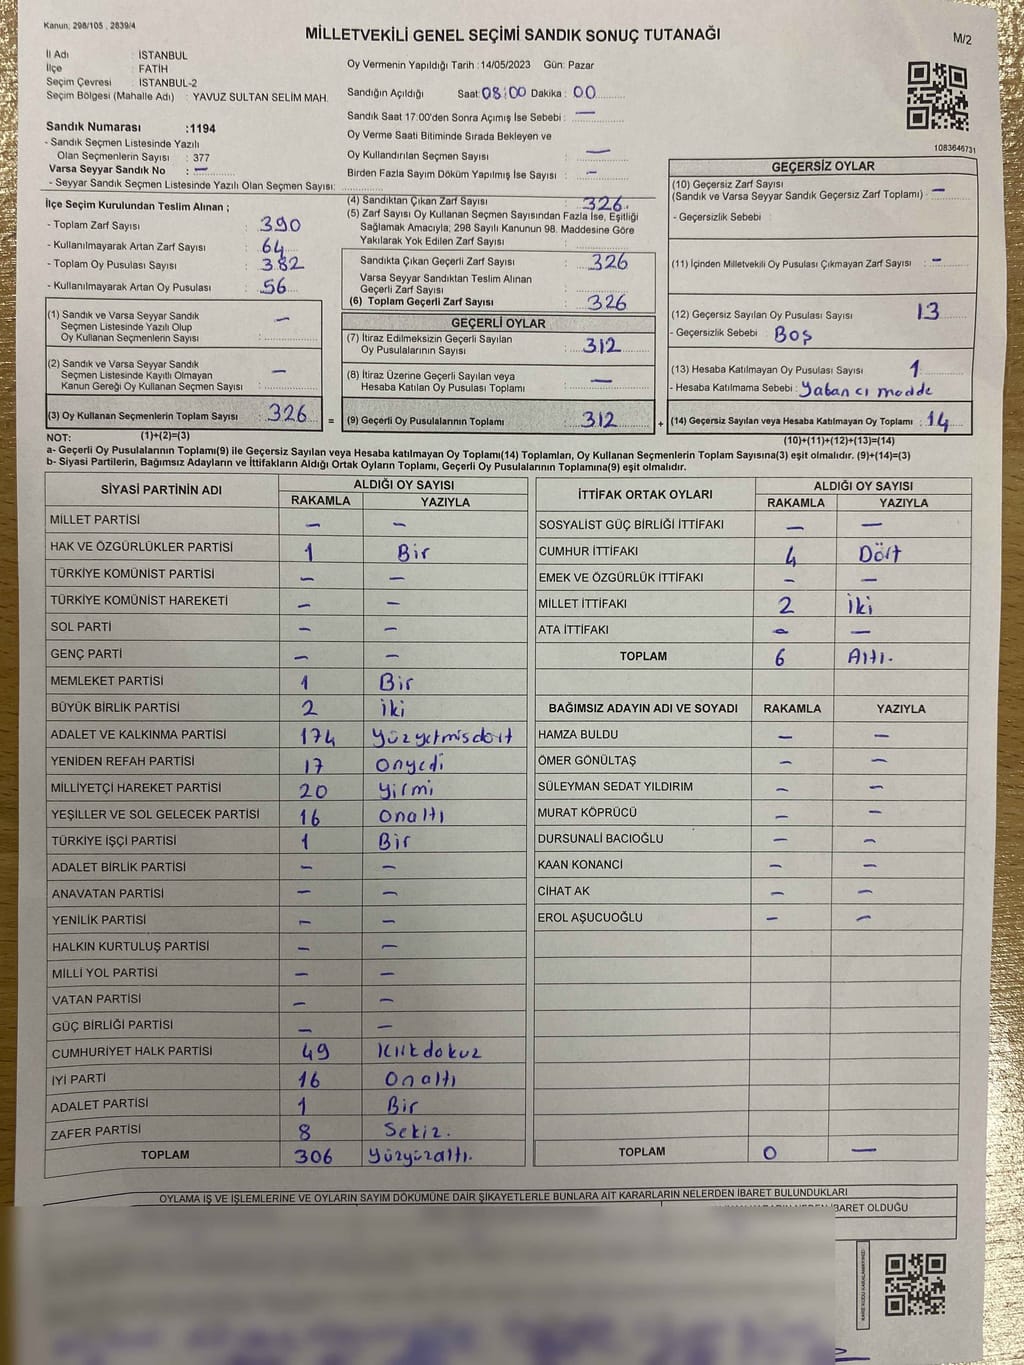 Kanun: 298/105 , 2839/4
MİLLETVEKİLİ GENEL SEÇİMİ SANDIK SONUÇ TUTANAĞI
M/2
İl Adı : İSTANBUL
İlçe : FATİH
Seçim Çevresi : İSTANBUL-2
Seçim Bölgesi (Mahalle Adı) : YAVUZ SULTAN SELİM MAH.
Oy Vermenin Yapıldığı Tarih :14/05/2023 Gün: Pazar
Sandığın Açıldığı Saat: 08:00 Dakika : 00
Sandık Saat 17:00'den Sonra Açımış İse Sebebi : —
Oy Verme Saati Bitiminde Sırada Bekleyen ve
Oy Kullandırılan Seçmen Sayısı : —
Birden Fazla Sayım Döküm Yapılmış İse Sayısı : –
1083646731
Sandık Numarası :1194
- Sandık Seçmen Listesinde Yazılı
Olan Seçmenlerin Sayısı : 377
Varsa Seyyar Sandık No : —
- Seyyar Sandık Seçmen Listesinde Yazılı Olan Seçmen Sayısı:
İlçe Seçim Kurulundan Teslim Alınan ;
- Toplam Zarf Sayısı : 390
- Kullanılmayarak Artan Zarf Sayısı : 64
- Toplam Oy Pusulası Sayısı : 382
- Kullanılmayarak Artan Oy Pusulası : 56
(1) Sandık ve Varsa Seyyar Sandık
Seçmen Listesinde Yazılı Olup
Oy Kullanan Seçmenlerin Sayısı : —
(2) Sandık ve Varsa Seyyar Sandık
Seçmen Listesinde Kayıtlı Olmayan
Kanun Gereği Oy Kullanan Seçmen Sayısı : —
(3) Oy Kullanan Seçmenlerin Toplam Sayısı : 326 =
(1)+(2)=(3)
(4) Sandıktan Çıkan Zarf Sayısı : 326.
(5) Zarf Sayısı Oy Kullanan Seçmen Sayısından Fazla İse, Eşitliği
Sağlamak Amacıyla; 298 Sayılı Kanunun 98. Maddesine Göre
Yakılarak Yok Edilen Zarf Sayısı :
Sandıkta Çıkan Geçerli Zarf Sayısı : 326
Varsa Seyyar Sandıktan Teslim Alınan
Geçerli Zarf Sayısı :
(6) Toplam Geçerli Zarf Sayısı : 326
GEÇERLİ OYLAR
(7) İtiraz Edilmeksizin Geçerli Sayılan
Oy Pusulalarının Sayısı : 312
(8) İtiraz Üzerine Geçerli Sayılan veya
Hesaba Katılan Oy Pusulası Toplamı : —
(9) Geçerli Oy Pusulalarının Toplamı : 312 +
GEÇERSİZ OYLAR
(10) Geçersiz Zarf Sayısı
(Sandık ve Varsa Seyyar Sandık Geçersiz Zarf Toplamı) · –
- Geçersizlik Sebebi :
(11) İçinden Milletvekili Oy Pusulası Çıkmayan Zarf Sayısı : –
(12) Geçersiz Sayılan Oy Pusulası Sayısı : 13
- Geçersizlik Sebebi : Boş
(13) Hesaba Katılmayan Oy Pusulası Sayısı : 1
- Hesaba Katılmama Sebebi : Yabancı madde
(14) Geçersiz Sayılan veya Hesaba Katılmayan Oy Toplamı : 14
(10)+(11)+(12)+(13)=(14)
NOT:
a- Geçerli Oy Pusulalarının Toplamı(9) ile Geçersiz Sayılan veya Hesaba katılmayan Oy Toplamı(14) Toplamları, Oy Kullanan Seçmenlerin Toplam Sayısına(3) eşit olmalıdır. (9)+(14)=(3)
b- Siyasi Partilerin, Bağımsız Adayların ve İttifakların Aldığı Ortak Oyların Toplamı, Geçerli Oy Pusulalarının Toplamına(9) eşit olmalıdır.
SİYASİ PARTİNİN ADI ALDIĞI OY SAYISI
RAKAMLA YAZIYLA
MİLLET PARTİSİ – –
HAK VE ÖZGÜRLÜKLER PARTİSİ 1 Bir
TÜRKİYE KOMÜNİST PARTİSİ – –
TÜRKİYE KOMÜNİST HAREKETİ – –
SOL PARTİ – –
GENÇ PARTİ – –
MEMLEKET PARTİSİ 1 Bir
BÜYÜK BİRLİK PARTİSİ 2 iki
ADALET VE KALKINMA PARTİSİ 174 yüzyetmisdört
YENİDEN REFAH PARTİSİ 17 onyedi
MİLLİYETÇİ HAREKET PARTİSİ 20 yirmi
YEŞİLLER VE SOL GELECEK PARTİSİ 16 onaltı
TÜRKİYE İŞÇİ PARTİSİ 1 Bir
ADALET BİRLİK PARTİSİ – –
ANAVATAN PARTİSİ – –
YENİLİK PARTİSİ – –
HALKIN KURTULUŞ PARTİSİ – –
MİLLİ YOL PARTİSİ – –
VATAN PARTİSİ – –
GÜÇ BİRLİĞİ PARTİSİ – –
CUMHURİYET HALK PARTİSİ 49 Kırkdokuz
İYİ PARTİ 16 Onaltı
ADALET PARTİSİ 1 Bir
ZAFER PARTİSİ 8 Sekiz.
TOPLAM 306 Yüzyüzaltı.
İTTİFAK ORTAK OYLARI ALDIĞI OY SAYISI
RAKAMLA YAZIYLA
SOSYALİST GÜÇ BİRLİĞİ İTTİFAKI – –
CUMHUR İTTİFAKI 4 Dört
EMEK VE ÖZGÜRLÜK İTTİFAKI – –
MİLLET İTTİFAKI 2 İki
ATA İTTİFAKI – –
TOPLAM 6 Altı.
BAĞIMSIZ ADAYIN ADI VE SOYADI RAKAMLA YAZIYLA
HAMZA BULDU – –
ÖMER GÖNÜLTAŞ – –
SÜLEYMAN SEDAT YILDIRIM – –
MURAT KÖPRÜCÜ – –
DURSUNALİ BACIOĞLU – –
KAAN KONANCI – –
CİHAT AK – –
EROL AŞUCUOĞLU – –
TOPLAM 0 —
OYLAMA İŞ VE İŞLEMLERİNE VE OYLARIN SAYIM DÖKÜMÜNE DAİR ŞİKAYETLERLE BUNLARA AİT KARARLARIN NELERDEN İBARET BULUNDUKLARI
İBARET OLDUĞU